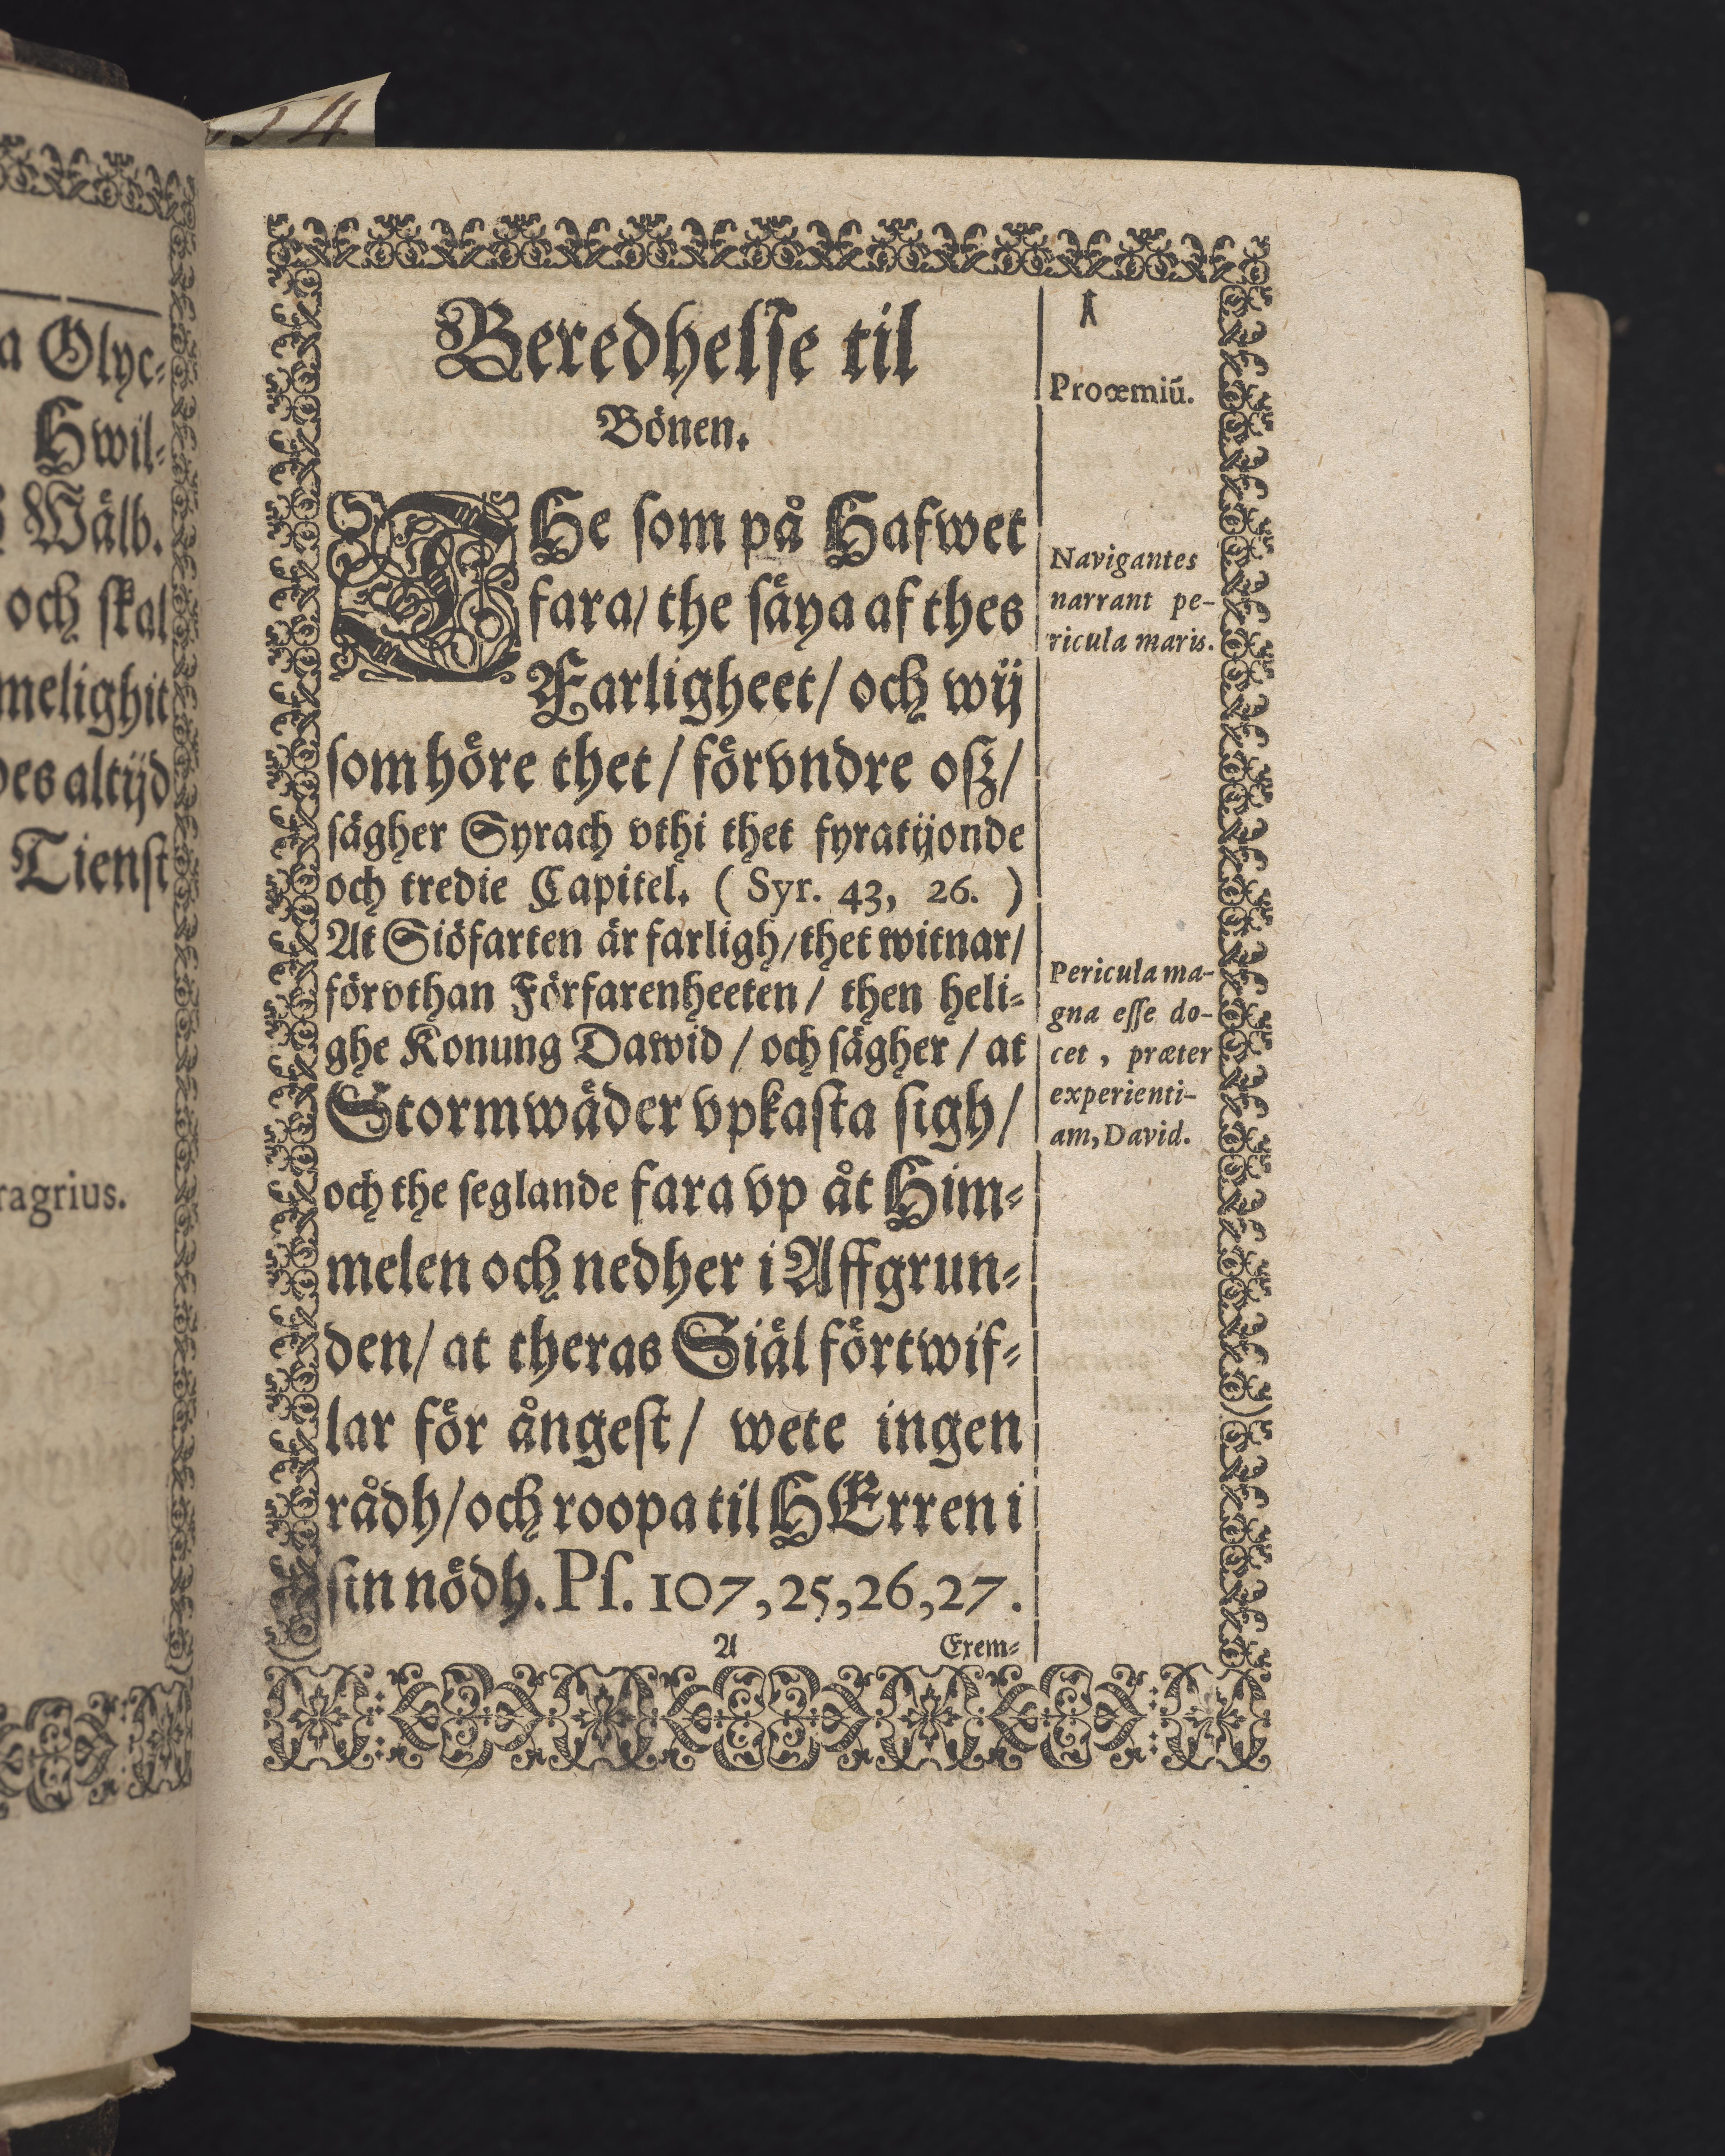 54
a Olyc-
Hwil-
Wälb.
och skal
melighit
des altijd
Tienst
ragrius.
Beredhelse til
Bönen.
THe som på Hafwet
fara/ the säya af thes
Farligheet/ och wij
som höre thet/ förvndre osz/
sägher Syrach vthi thet fyratijonde
och tredie Capitel. ( Syr. 43, 26. )
At Siöfarten är farligh/ thet witnar/
förvthan Förfarenheeten/ then heli-
ghe Konung Dawid/ och sägher/ at
Stormwäder vpkasta sigh/
och the seglande fara vp åt Him-
melen och nedher i Affgrun-
den/ at theras Siäl förtwif-
lar för ångest/ wete ingen
rådh/ och roopa til HErren i
sin nödh. Ps. 107, 25, 26, 27.
A
Exem-
Proœmiũ.
Navigantes
narrant pe-
ricula maris.
Pericula ma-
gna esse do-
cet, præter
experienti-
am, David.